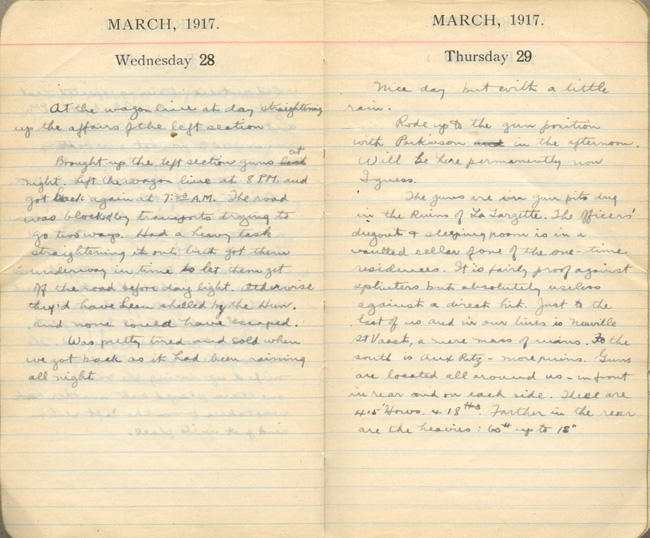 MARCH, 1917.
Wednesday 28
At the wagon line at day straightening
up the affairs of the left section
Brought up the left section guns last at
night. Left the wagon line at 8 P.M. and
got back again at 7:30 A.M. The road
was blocked by transports trying to
go two ways. Had a heavy task
straightening it out, but got them
underway in time to let them get
off the road before day light. Otherwise
they'd have been shelled by the Hun.
and none could have escaped.
Was pretty tired and cold when
we got back as it had been raining
all night
MARCH, 1917.
Thursday 29
Nice day but with a little
rain.
Rode up to the gun position
with Parkinson and in the afternoon.
Will be here permanently now
I guess.
The guns are in gun pits dug
in the Ruins of La Targette. The officers'
dugout & sleeping room is in a
vaulted cellar of one of the one-time
residences. It is fairly proof against
splinters but absolutely useless
against a direct hit. Just to the
left of us and in our lines is Neuville
St Vaast, a mere mass of ruins. To the
south is Aux Rietz - more ruins. Guns
are located all around us - in front
in rear and on each side. These are
4.5" Hows. & 18 #s. Farther in the rear
are the heavies: 60# up to 15"